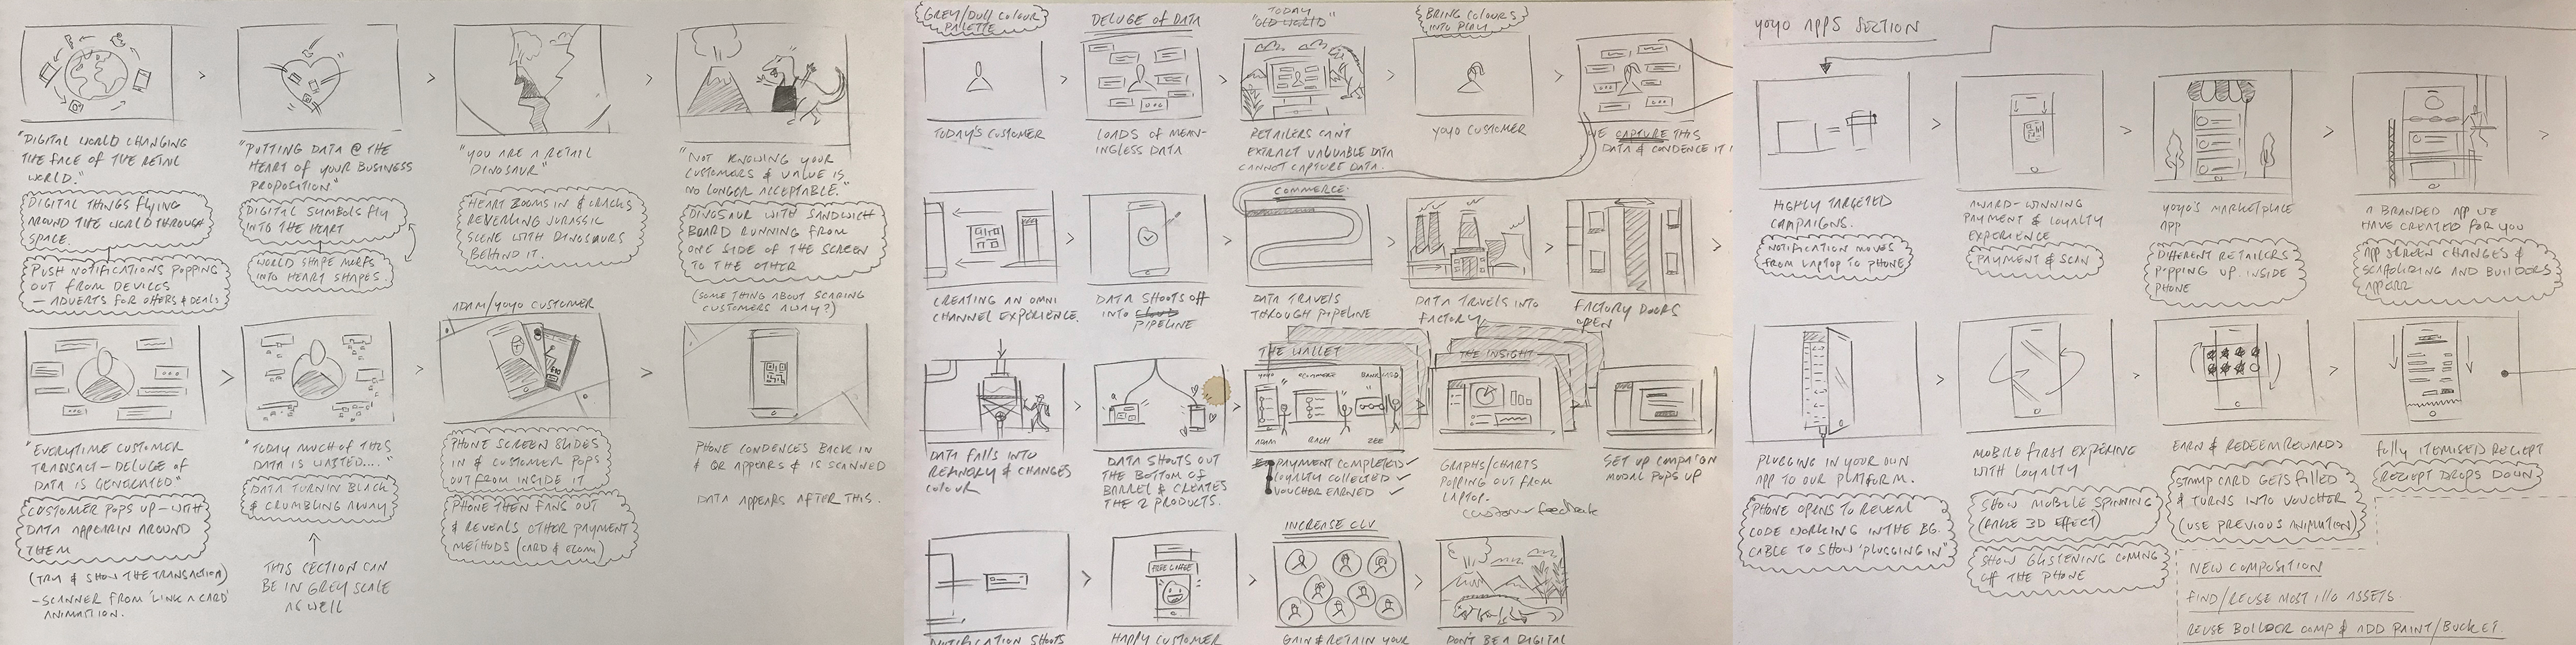 "DIGITAL WORLD CHANGING
THE FACE OF THE RETAIL
WORLD."
DIGITAL THINGS FLYING
AROUND THE WORLD THROUGH
SPACE.
PUSH NOTIFICATIONS POPPING
OUT FROM DEVICES
— ADVERTS FOR OFFERS & DEALS
"PUTTING DATA @ THE
HEART OF YOUR BUSINESS
PROPOSITION"
DIGITAL SYMBOLS FLY
INTO THE HEART
WORLD SHAPE MORFS
INTO HEART SHAPES.
"YOU ARE A RETAIL
DINOSAUR"
HEART ZOOMS IN & CRACKS
REVEALING JURASSIC
SCENE WITH DINOSAURS
BEHIND IT.
"NOT KNOWING YOUR
CUSTOMERS & VALUE IS
NO LONGER ACCEPTABLE."
DINOSAUR WITH SANDWICH
BOARD RUNNING FROM
ONE SIDE OF THE SCREEN
TO THE OTHER
(SOME THING ABOUT SCARING
CUSTOMERS AWAY?)
"EVERYTIME CUSTOMER
TRANSACT — DELUGE OF
DATA IS GENERATED"
CUSTOMER POPS UP — WITH
DATA APPEARIN AROUND
THEM
(TRY & SHOW THE TRANSACTION)
- SCANNER FROM 'LINK A CARD'
ANIMATION.
"TODAY MUCH OF THIS
DATA IS WASTED...."
DATA TURNIN BLACK
& CRUMBLING AWAY
THIS SECTION CAN
BE IN GREY SCALE
AS WELL
ADAM/YOYO CUSTOMER
PHONE SCREEN SLIDES
IN & CUSTOMER POPS
OUT FROM INSIDE IT
PHONE THEN FANS OUT
& REVEALS OTHER PAYMENT
METHODS (CARD & ECOM)
PHONE CONDENCES BACK IN
& QR APPEARS & IS SCANNED
DATA APPEARS AFTER THIS.
GREY/DULL COLOUR
PALETTE
TODAY'S CUSTOMER
DELUGE OF DATA
LOADS OF MEAN-
INGLESS DATA
TODAY
"OLD WORLD"
RETAILERS CAN'T
EXTRACT VALUABLE DATA
CANNOT CAPTURE DATA.
BRING COLOURS
INTO PLAY
YOYO CUSTOMER
WE CAPTURE THIS
DATA & CONDENCE IT
CREATING AN OMNI
CHANNEL EXPERIENCE.
DATA SHOOTS OFF
INTO
PIPELINE
COMMERCE
DATA TRAVELS
THROUGH PIPELINE
DATA TRAVELS INTO
FACTORY
FACTORY DOORS
OPEN
DATA FALLS INTO
REFINERY & CHANGES
COLOUR
DATA SHOOTS OUT
THE BOTTOM OF
BARREL & CREATES
THE 2 PRODUCTS.
THE WALLET
YOYO
ECOMMERCE
ADAM
RACH
ZEE
PAYMENT COMPLETED ✓
LOYALTY COLLECTED ✓
VOUCHER EARNED ✓
THE INSIGHT
GRAPHS/CHARTS
POPPING OUT FROM
LAPTOP.
CUSTOMER FEEDBACK
SET UP CAMPAIGN
MODAL POPS UP
NOTIFICATION SHOOTS
FREE COFFEE
HAPPY CUSTOMER
INCREASE CLV
GAIN & RETAIN YOUR
DON'T BE A DIGITAL
YOYO APPS SECTION
HIGHLY TARGETED
CAMPAIGNS.
NOTIFICATION MOVES
FROM LAPTOP TO PHONE
AWARD-WINNING
PAYMENT & LOYALTY
EXPERIENCE
PAYMENT & SCAN
YOYO'S MARKETPLACE
APP
DIFFERENT RETAILERS
POPPING UP INSIDE
PHONE
A BRANDED APP WE
HAVE CREATED FOR YOU
APP SCREEN CHANGES &
SCAFOLDING AND BUILDERS
APPEAR
PLUGGING IN YOUR OWN
APP TO OUR PLATFORM.
PHONE OPENS TO REVEAL
CODE WORKING IN THE BG.
CABLE TO SHOW 'PLUGGING IN'
MOBILE FIRST EXPERINC
WITH LOYALTY
SHOW MOBILE SPINNING
(FAKE 3D EFFECT)
SHOW GLISTENING COMING
OFF THE PHONE
EARN & REDEEM REWARDS
STAMP CARD GETS FILLED
& TURNS INTO VOUCHER
(USE PREVIOUS ANIMATION)
FULLY ITEMISED RECIEPT
RECIEPT DROPS DOWN
NEW COMPOSITION
FIND/REUSE MOST ILLO ASSETS.
REUSE BUILDER COMP & ADD PAINT/BUCKET.